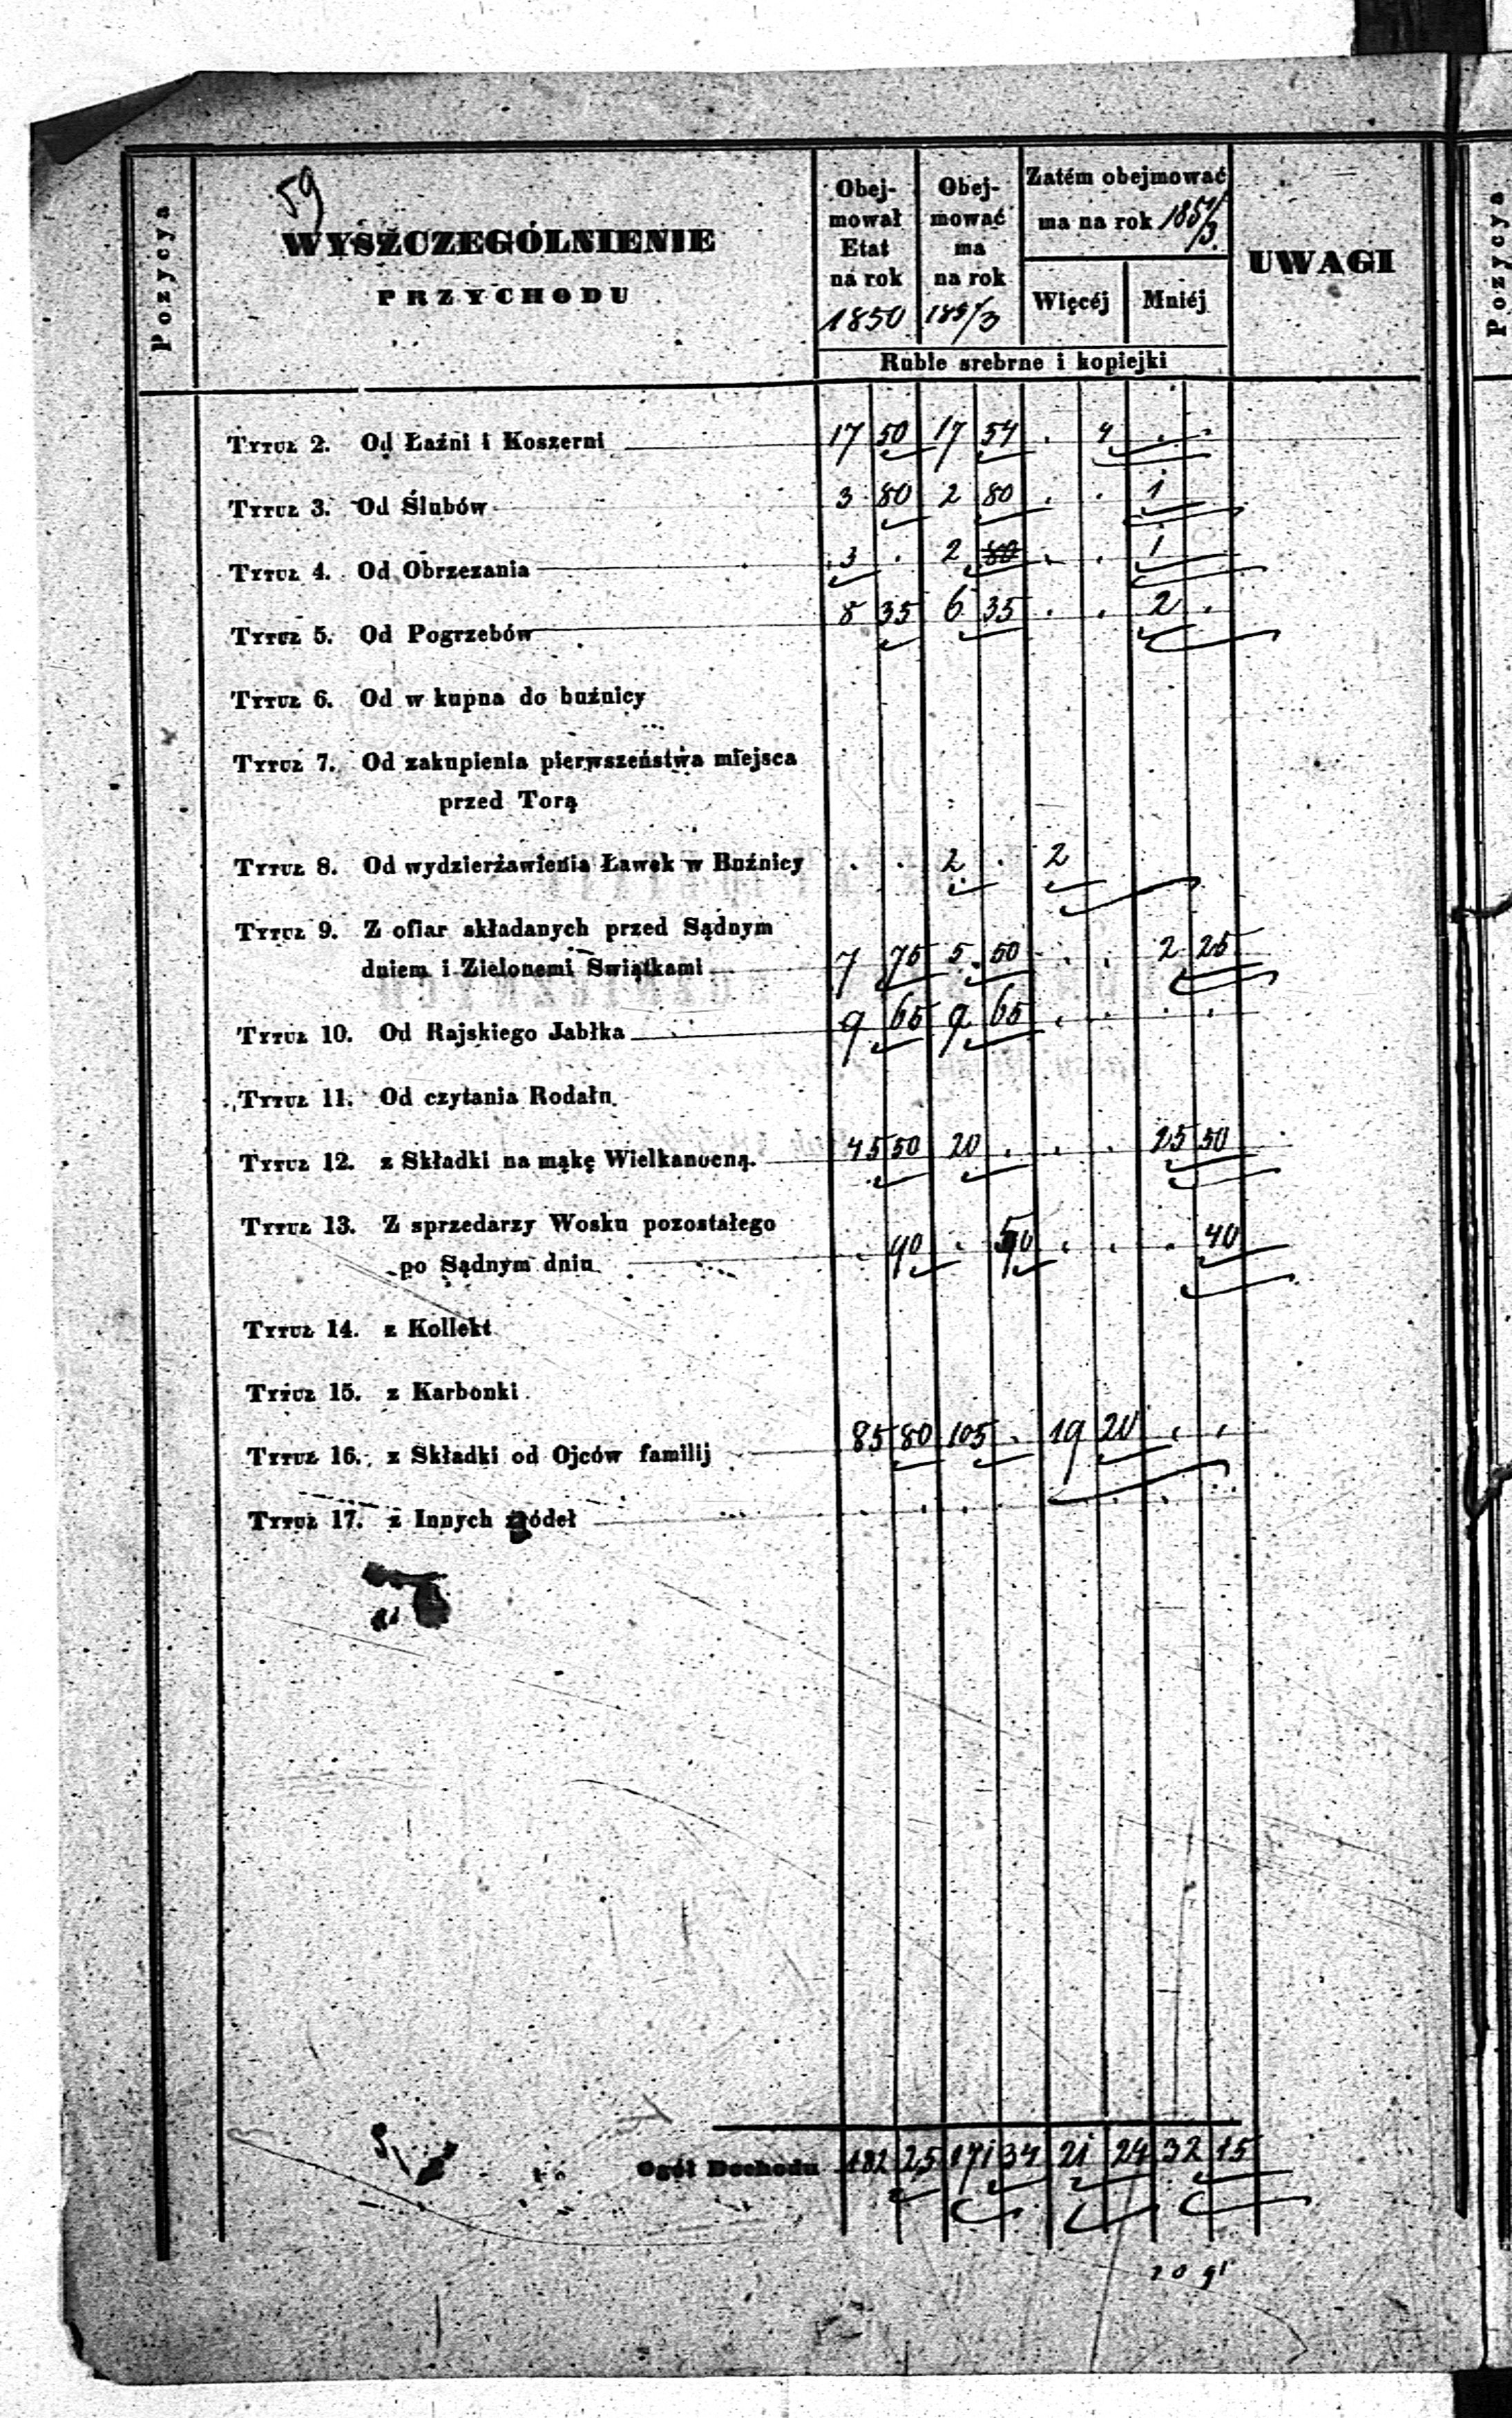 59
Pozycya
WYSZCZEGÓLNIENIE
PRZYCHODU
Obej-
mował
Etat
na rok
1850
Obej-
mować
ma
na rok
1851/3
Zatém obejmować
ma na rok 1851/3.
Więcéj Mniéj
UWAGI
Ruble srebrne i kopiejki
Tytuł 2. Od Łaźni i Koszerni 17 50 17 54 . 4 . .
Tytuł 3. Od Ślubów 3 80 2 80 . . 1
Tytuł 4. Od Obrzezania 3 . 2 80 . . 1
Tytuł 5. Od Pogrzebów 8 35 6 35 . . 2 .
Tytuł 6. Od w kupna do bużnicy
Tytuł 7. Od zakupienia pierwszeństwa miejsca
przed Torą
Tytuł 8. Od wydzierżawienia Ławek w Bużnicy . . 2 . 2
Tytuł 9. Z ofiar składanych przed Sądnym
dniem i Zielonemi Swiątkami 7 75 5 50 . . 2 25
Tytuł 10. Od Rajskiego Jabłka 9 65 9 65 . . . .
Tytuł 11. Od czytania Rodału
Tytuł 12. z Składki na mąkę Wielkanocną. 45 50 20 . . . 25 50
Tytuł 13. Z sprzedarzy Wosku pozostałego
po Sądnym dniu . 90 . 50 . . . 40
Tytuł 14. z Kollekt
Tytuł 15. z Karbonki
Tytuł 16. z Składki od Ojców familij 85 80 105 . 19 20 . .
Tytuł 17. z Innych źródeł
Ogół Dochodu 182 25 171 34 21 24 32 15
Pozycya